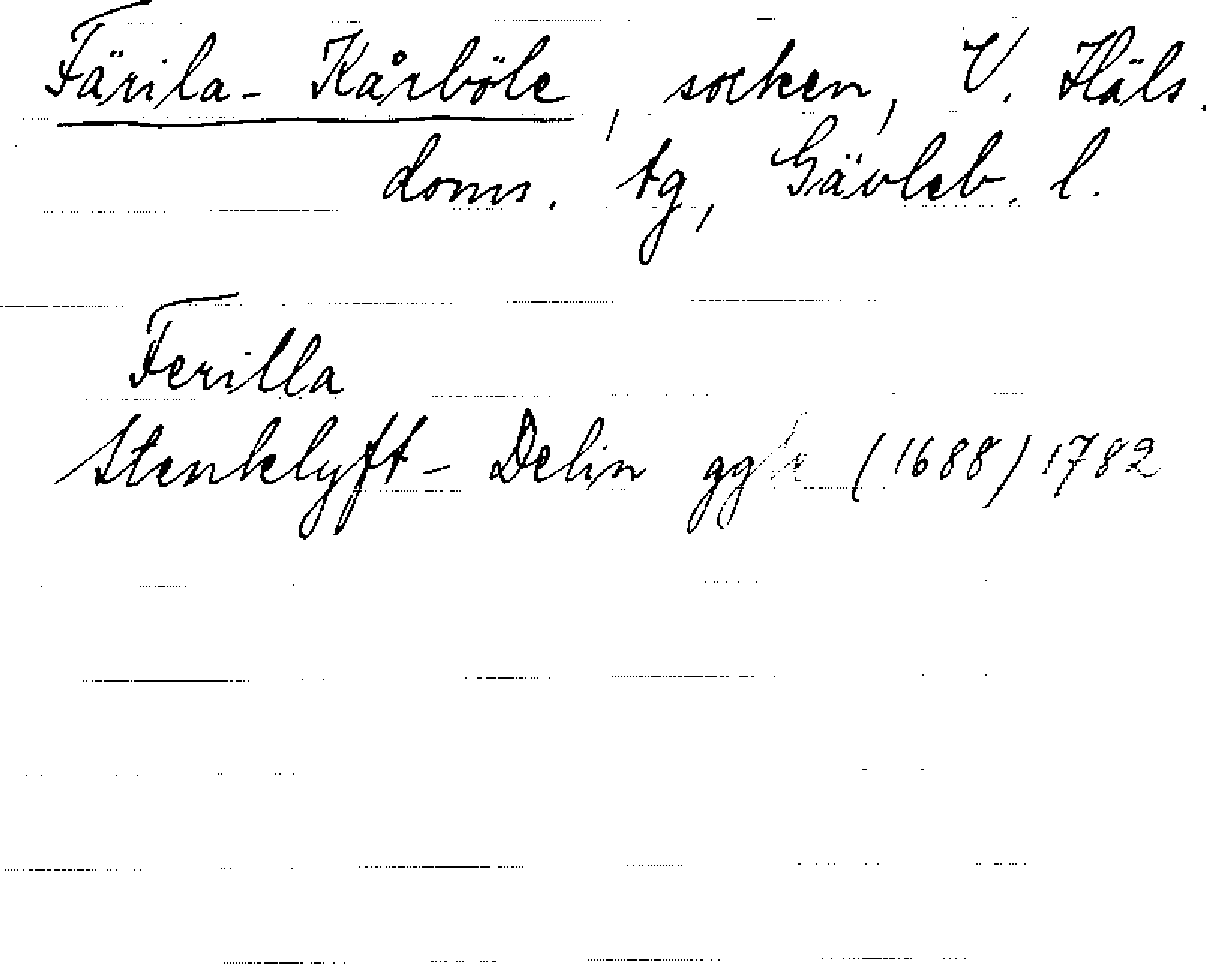 Färila-Kårböle, socken, V. Häls.
doms. tg, Gävleb. l.
Ferilla
Stenklyft-Delin ggk (1688) 1782